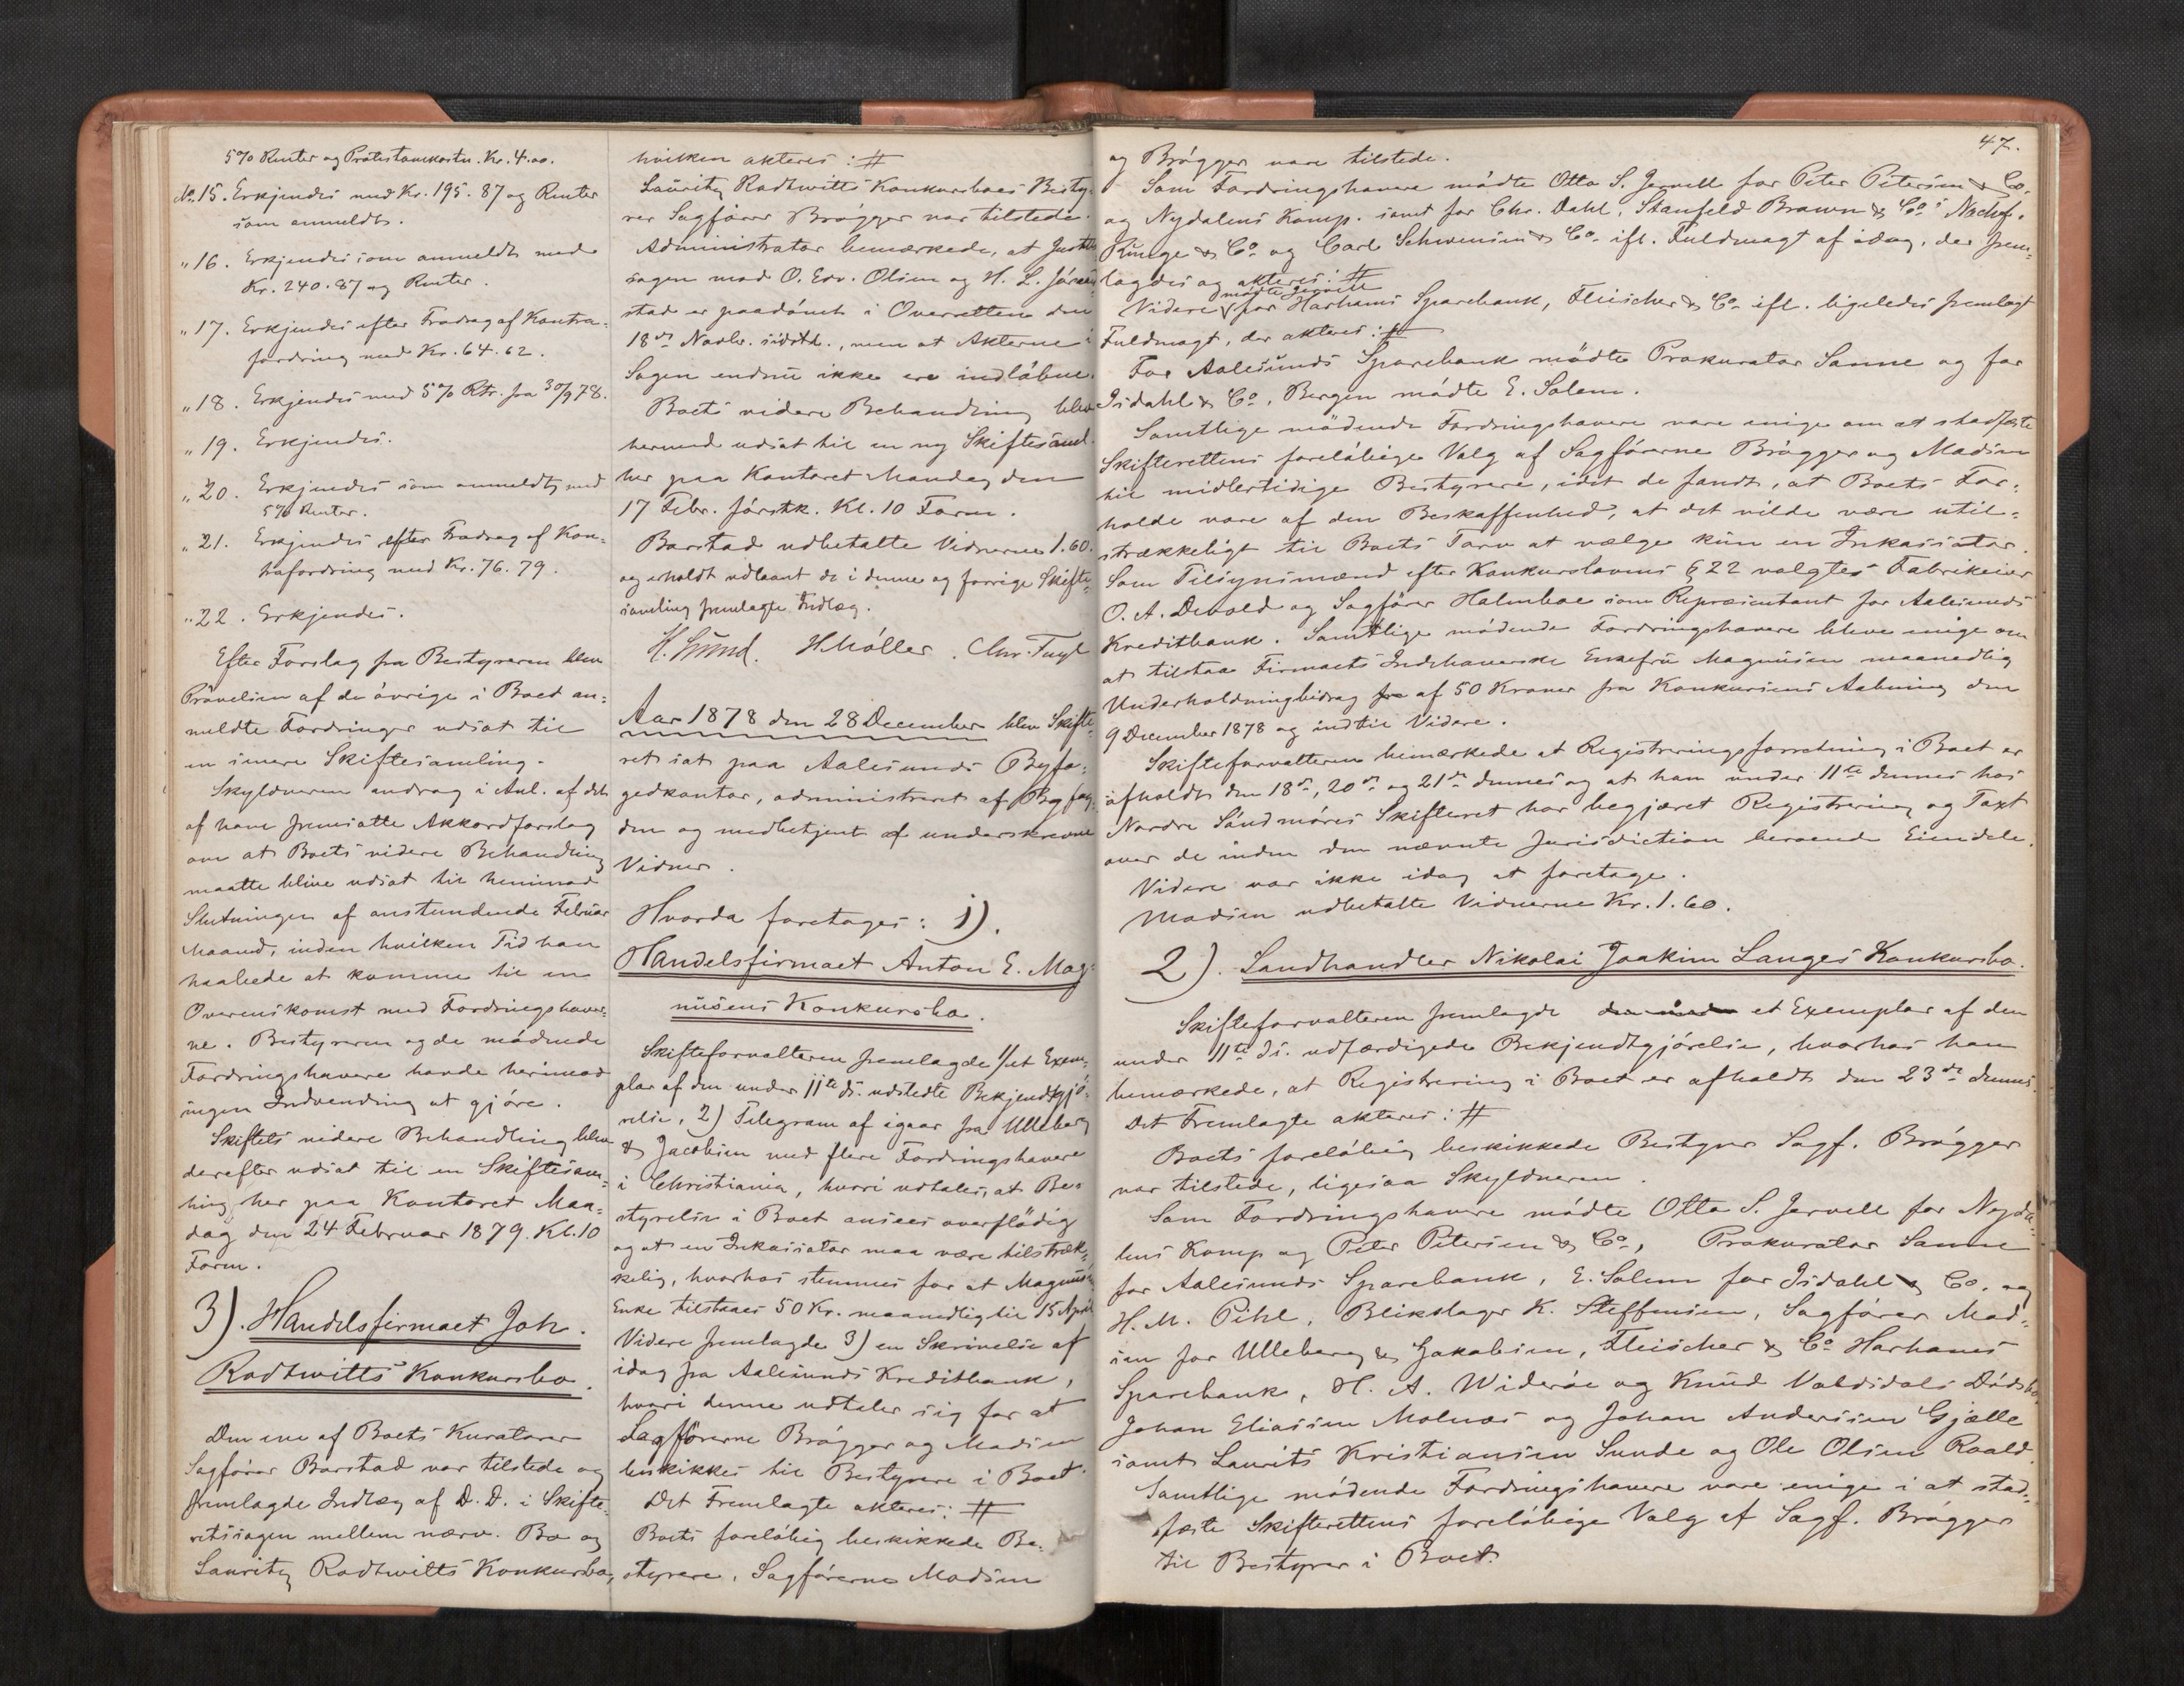 5% Renter og Protestomkostn. Kr. 4.00.
No. 15. Erkjendes med Kr. 195.87 og Renter
som anmeldt.
" 16. Erkjendes som anmeldt med
Kr. 240.87 og Renter.
" 17. Erkjendes efter Fradrag af Kontra=
fordring med Kr. 64.62.
" 18. Erkjendes med 5% Rtr. fra 30/9 78.
" 19. Erkjendes.
" 20. Erkjendes som anmeldt med
5% Renter.
" 21. Erkjendes efter Fradrag af Kon=
trafordring med Kr. 76.79.
" 22. Erkjendes.
Efter Forslag fra Bestyreren blev
Prøvelsen af de øvrige i Boet an=
meldte Fordringer udsat til
en senere Skiftesamling.
Skyldneren androg i Anl. af det
af ham fremsatte Akkordforslag
om at Boets videre Behandling
maatte blive udsat til henimod
Slutningen af anstundende Februar
Maaned, inden hvilken Tid han
haabede at komme til en
Overenskomst med Fordringshaver=
ne. Bestyreren og de mødende
Fordringshavere havde herimod
ingen Indvending at gjøre.
Skiftets videre Behandling blev
derefter udsat til en Skiftesam=
ling her paa Kontoret Man=
dag den 24 Februar 1879. Kl. 10
Form.
3). Handelsfirmaet Joh.
Rodtwitts Konkursbo.
Den ene af Boets Kuratorer
Sagfører Barstad var tilstede og
fremlagde Indlæg af D. D. i Skifte=
retssagen mellem nærv. Bo og
Lauritz Rodtwitts Konkursbo,
hvilken akteres: #
Lauritz Rodtwitts Konkursboes Besty=
rer Sagfører Brøgger var tilstede.
Administrator bemærkede, at Justits
sagen mod O. Edv. Olsen og H. L.
stad er paadømt i Overretten den
18de Novbr. sidstl., men at Akterne i
Sagen endnu ikke ere indløbne.
Boets videre Behandling blev
hermed udsat til en ny Skiftesaml.
her paa Kontoret Mandag den
17 Febr. førstk. Kl. 10 Form.
Barstad udbetalte Vidnerne 1.60.
og erholdt udlaant de i denne og forrige Skifte=
samling fremlagte Indlæg.
H. Lund. H Møller. Chr.
Aar 1878 den 28 December blev Skifte=
ret sat paa Aalesunds Byfo=
gedkontor, administreret af Byfog=
den og medbetjent af underskrevne
Vidner.
Hvorda foretages: 1).
Handelsfirmaet Anton E. Mag=
nusens Konkursbo.
Skifteforvalteren fremlagde 1/ et Exem=
plar af den under 11te ds. udstedte Bekjendtgjø=
relse, 2) Telegram af igaar fra Ulleberg
& Jacobsen med flere Fordringshavere
i Christiania, hvori udtales, at Be=
styrelse i Boet ansees overflødig
og at en Inkassator maa være tilstræk=
kelig, hvorhos stemmes for at Magnus.
Enke tilstaaes 50 Kr. maanedlig til 15 April
Videre fremlagde 3) en Skrivelse af
idag fra Aalesunds Kreditbank,
hvori denne udtaler sig for at
Sagførerne Brøgger og Madsen
beskikkes til Bestyrere i Boet.
Det Fremlagte akteres: #
Boets foreløbig beskikkede Be=
styrere, Sagførerne Madsen
47.
og Brøgger vare tilstede.
Som Fordringshavere mødte Otto S. Jervell for Peter Petersen & Co.
og Nydalens Komp. samt for Chr. Dahl, Stanfeld Brown & Co's Nachf.
Runge & Co og Carl Schwensen & Co ifl. Fuldmagt af idag, der frem=
lagdes og akteres: #
mødte Jervell
Videre for Harhams Sparebank, Fleischer & Co ifl. ligeledes fremlagt
Fuldmagt, der akteres: #
For Aalesunds Sparebank mødte Prokurator Sanne og for
Isdahl & Co, Bergen mødte E. Solem.
Samtlige mødende Fordringshavere vare enige om at stadfæste
Skifterettens foreløbige Valg af Sagførerne Brøgger og Madsen
til midlertidige Bestyrere, idet de fandt, at Boets For=
holde vare af den Beskaffenhed, at det vilde være util=
strækkeligt til Boets Tarv at vælge kun en Inkassator.
Som Tilsynsmænd efter Konkurslovens § 22 valgtes Fabrikeier
O. A. Devold og Sagfører Holmboe som Repræsentant for Aalesunds
Kreditbank. Samtlige mødende Fordringshavere bleve enige om
at tilstaa Firmaets Indehaverske Enkefru Magnusen maanedlig
Underholdningbidrag fra af 50 Kroner fra Konkursens Aabning den
9 December 1878 og indtil Videre.
Skifteforvalteren bemærkede at Registreringsforretning i Boet er
afholdt den 18de, 20de og 21de dennes og at han under 11te dennes hos
Nordre Søndmøres Skifteret har begjæret Registrering og Taxt
over de inden den nævnte Jurisdiction beroende Eiendele.
Videre var ikke idag at foretage.
Madsen udbetalte Vidnerne Kr. 1.60.
2). Landhandler Nikolai Joakim Langes Konkursbo.
Skifteforvalteren fremlagde den under et Exemplar af den
under 11te ds. udfærdigede Bekjendtgjørelse, hvorhos han
bemærkede, at Registrering i Boet er afholdt den 23de dennes.
Det Fremlagte akteres: #
Boets foreløbig beskikkede Bestyrer Sagf. Brøgger
var tilstede, ligesaa Skyldneren.
Som Fordringshavere mødte Otto S. Jervell for Nyda=
lens Komp og Peter Petersen & Co, Prokurator Sanne
for Aalesunds Sparebank, E. Solem for Isdahl & Co. og
H. M. Pihl, Blikslager K. Steffensen, Sagfører Mad=
sen for Ulleberg & Jakobsen, Fleischer & Co Harhams
Sparebank, H. A. Widerøe og Knud Valdsdals Dødsbo,
Johan Eliassen Molnæs og Johan Anderssen Gjælle
samt Laurits Kristiansen Sunde og Ole Olsen Roald.
Samtlige mødende Fordringshavere vare enige i at stad=
fæste Skifterettens foreløbige Valg af Sagf. Brøgger
til Bestyrer i Boet.